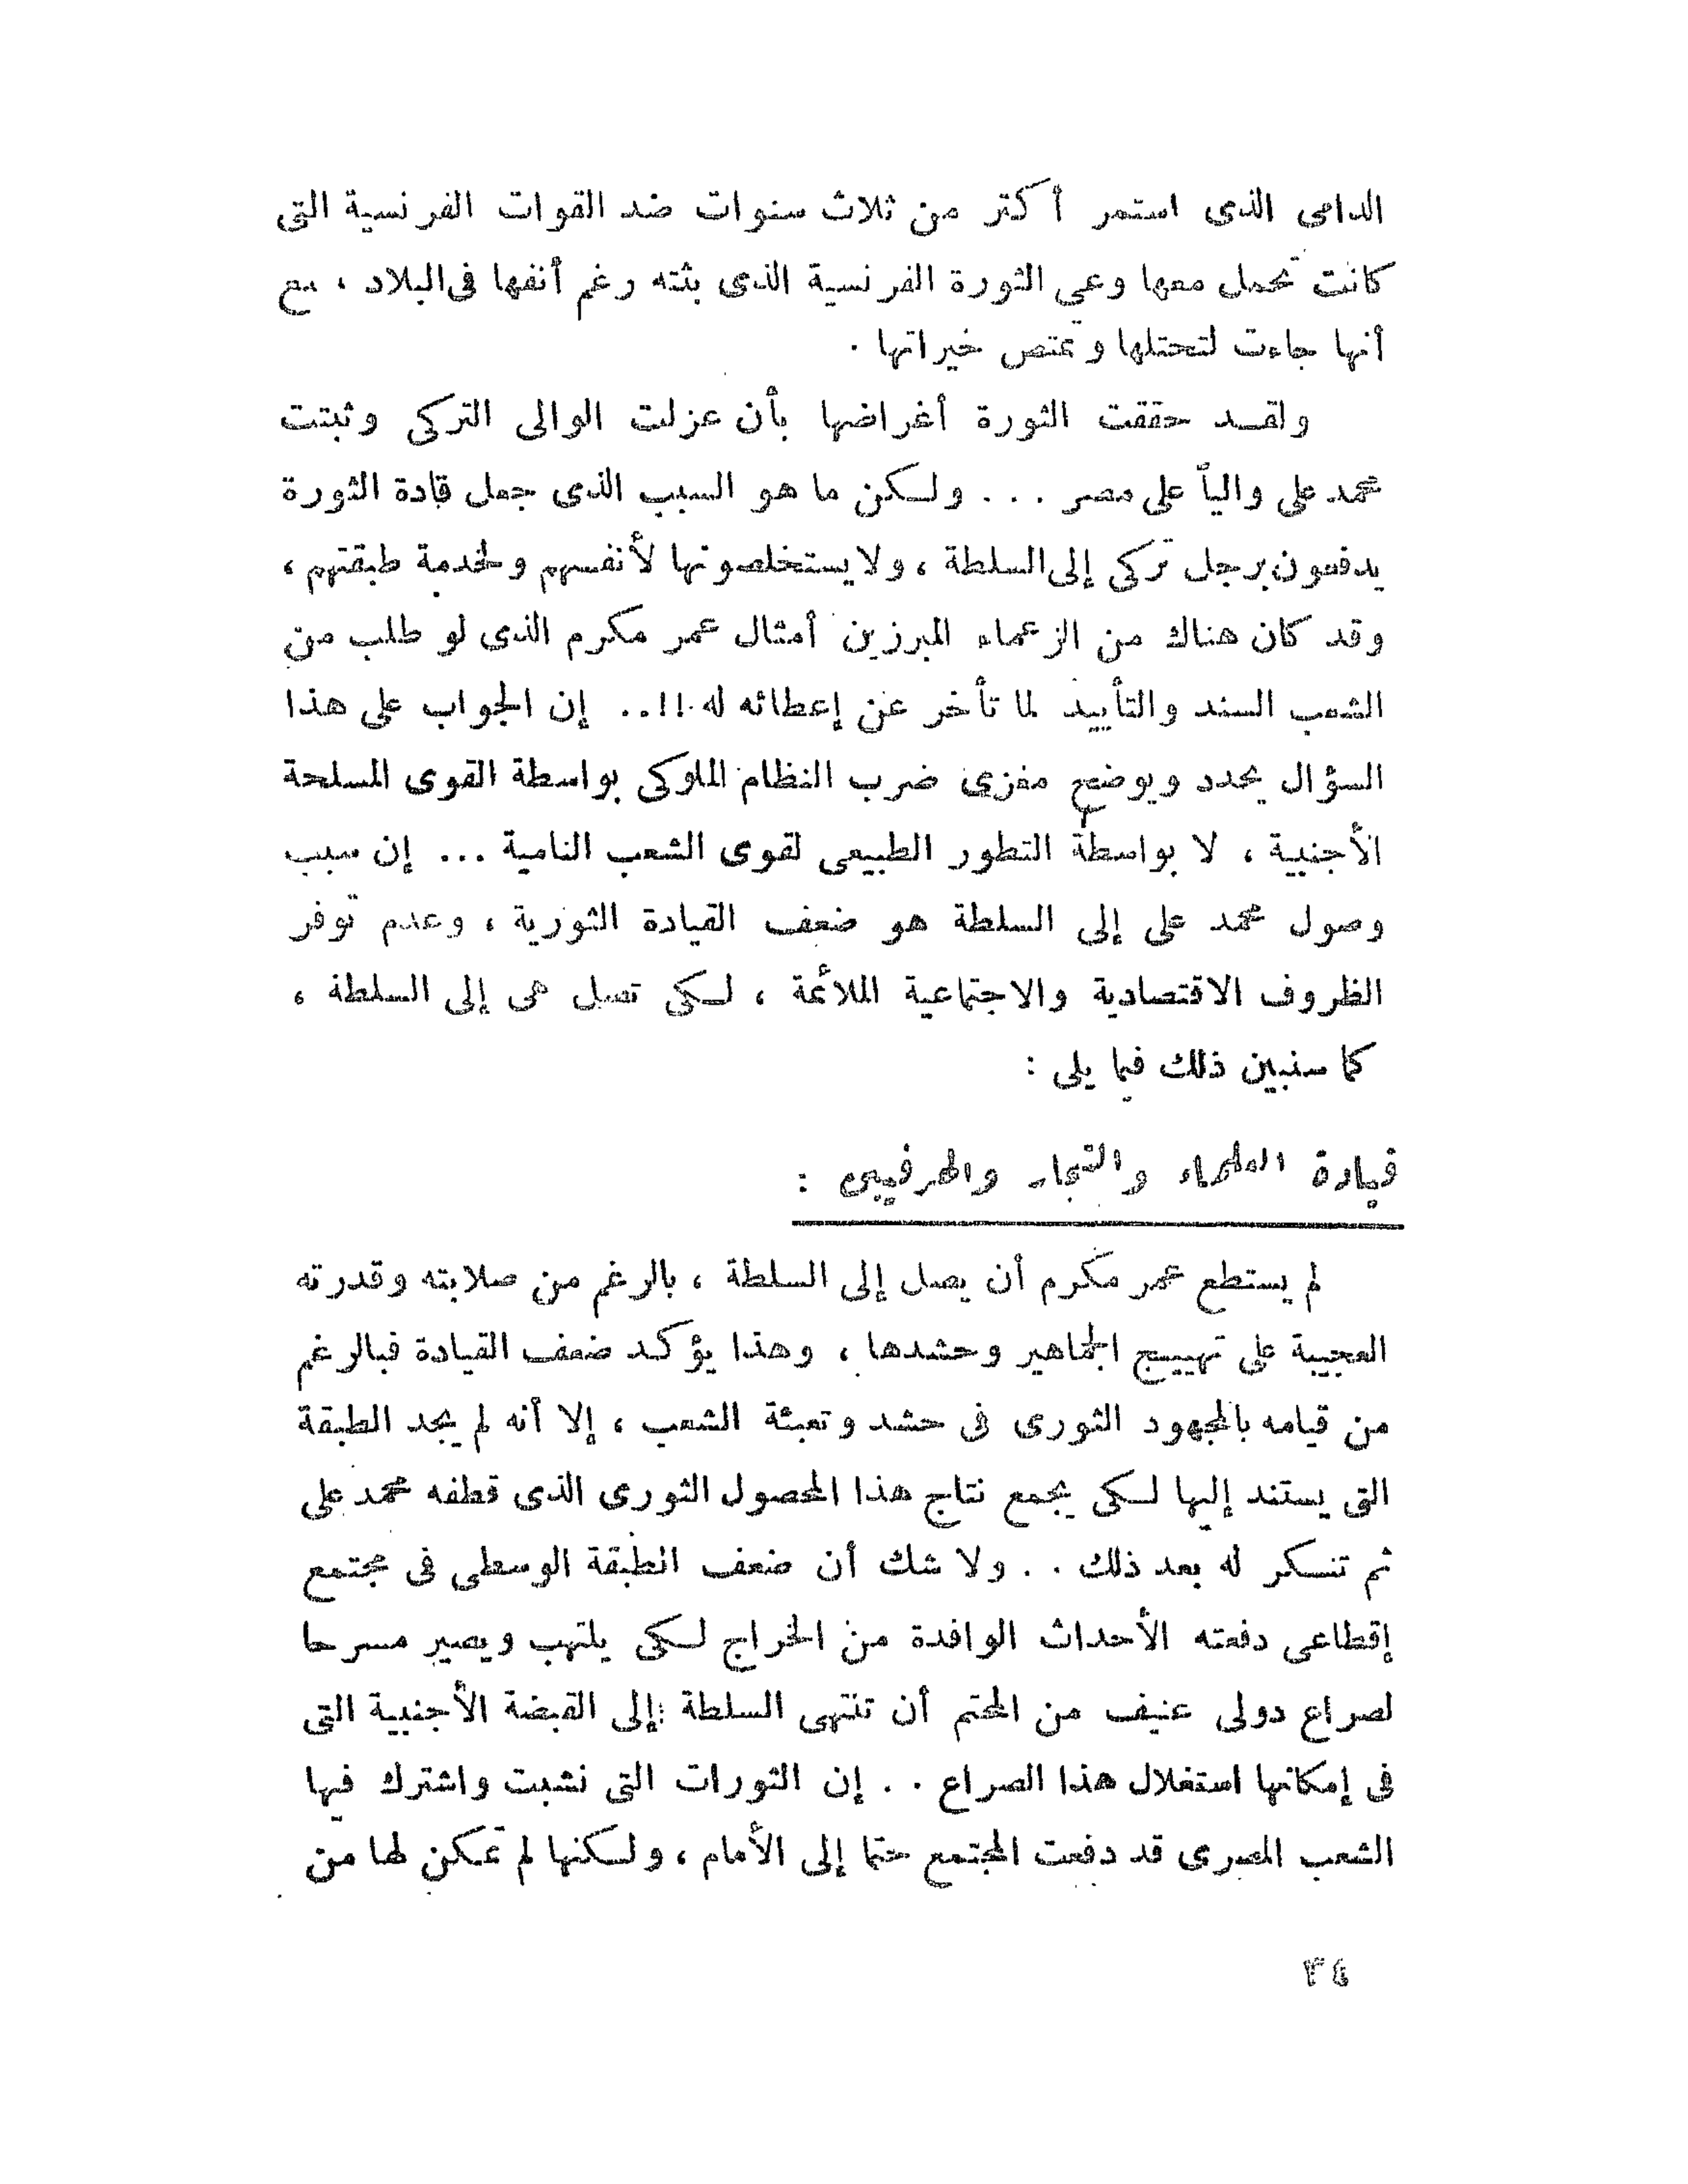 الدامى الذى استمر أكثر من ثلاث سنوات ضد القوات الفرنسية التى
كانت تحمل معها وعي الثورة الفرنسية الذى بثته رغم أنفها فى البلاد ، مع
أنها جاءت لتحتلها وتمتص خيراتها .
ولقد حققت الثورة أغراضها بأن عزلت الوالى التركى وثبتت
محمد على والياً على مصر ... ولكن ما هو السبب الذى جعل قادة الثورة
يدفعون برجل تركى إلى السلطة ، ولا يستخلصونها لأنفسهم ولخدمة طبقتهم ،
وقد كان هناك من الزعماء المبرزين أمثال عمر مكرم الذى لو طلب من
الشعب السند والتأييد لما تأخر عن إعطائه له !!.. إن الجواب على هذا
السؤال يحدد ويوضح مغزى ضرب النظام الملوكى بواسطة القوى المسلحة
الأجنبية ، لا بواسطة التطور الطبيعى لقوى الشعب النامية ... إن سبب
وصول محمد على إلى السلطة هو ضعف القيادة الثورية ، وعدم توفر
الظروف الاقتصادية والاجتماعية الملائمة ، لكى تصل هى إلى السلطة ،
كما سنبين ذلك فيما يلى :
قيادة العلماء والتجار والحرفيين :
لم يستطع عمر مكرم أن يصل إلى السلطة ، بالرغم من صلابته وقدرته
العجيبة على تهييج الجماهير وحشدها ، وهذا يؤكد ضعف القيادة فبالرغم
من قيامه بالمجهود الثورى فى حشد وتعبئة الشعب ، إلا أنه لم يجد الطبقة
التى يستند إليها لكى يجمع نتاج هذا المحصول الثورى الذى قطفه محمد على
ثم تنكر له بعد ذلك . . ولا شك أن ضعف الطبقة الوسطى فى مجتمع
إقطاعى دفعته الأحداث الوافدة من الخراج لكى يلتهب ويصير مسرحا
لصراع دولى عنيف من المحتم أن تنتهى السلطة إلى القبضة الأجنبية التى
فى إمكانها استغلال هذا الصراع . . إن الثورات التى نشبت واشترك فيها
الشعب المصرى قد دفعت المجتمع حتما إلى الأمام ، ولكنها لم تمكن لها من
٣٤